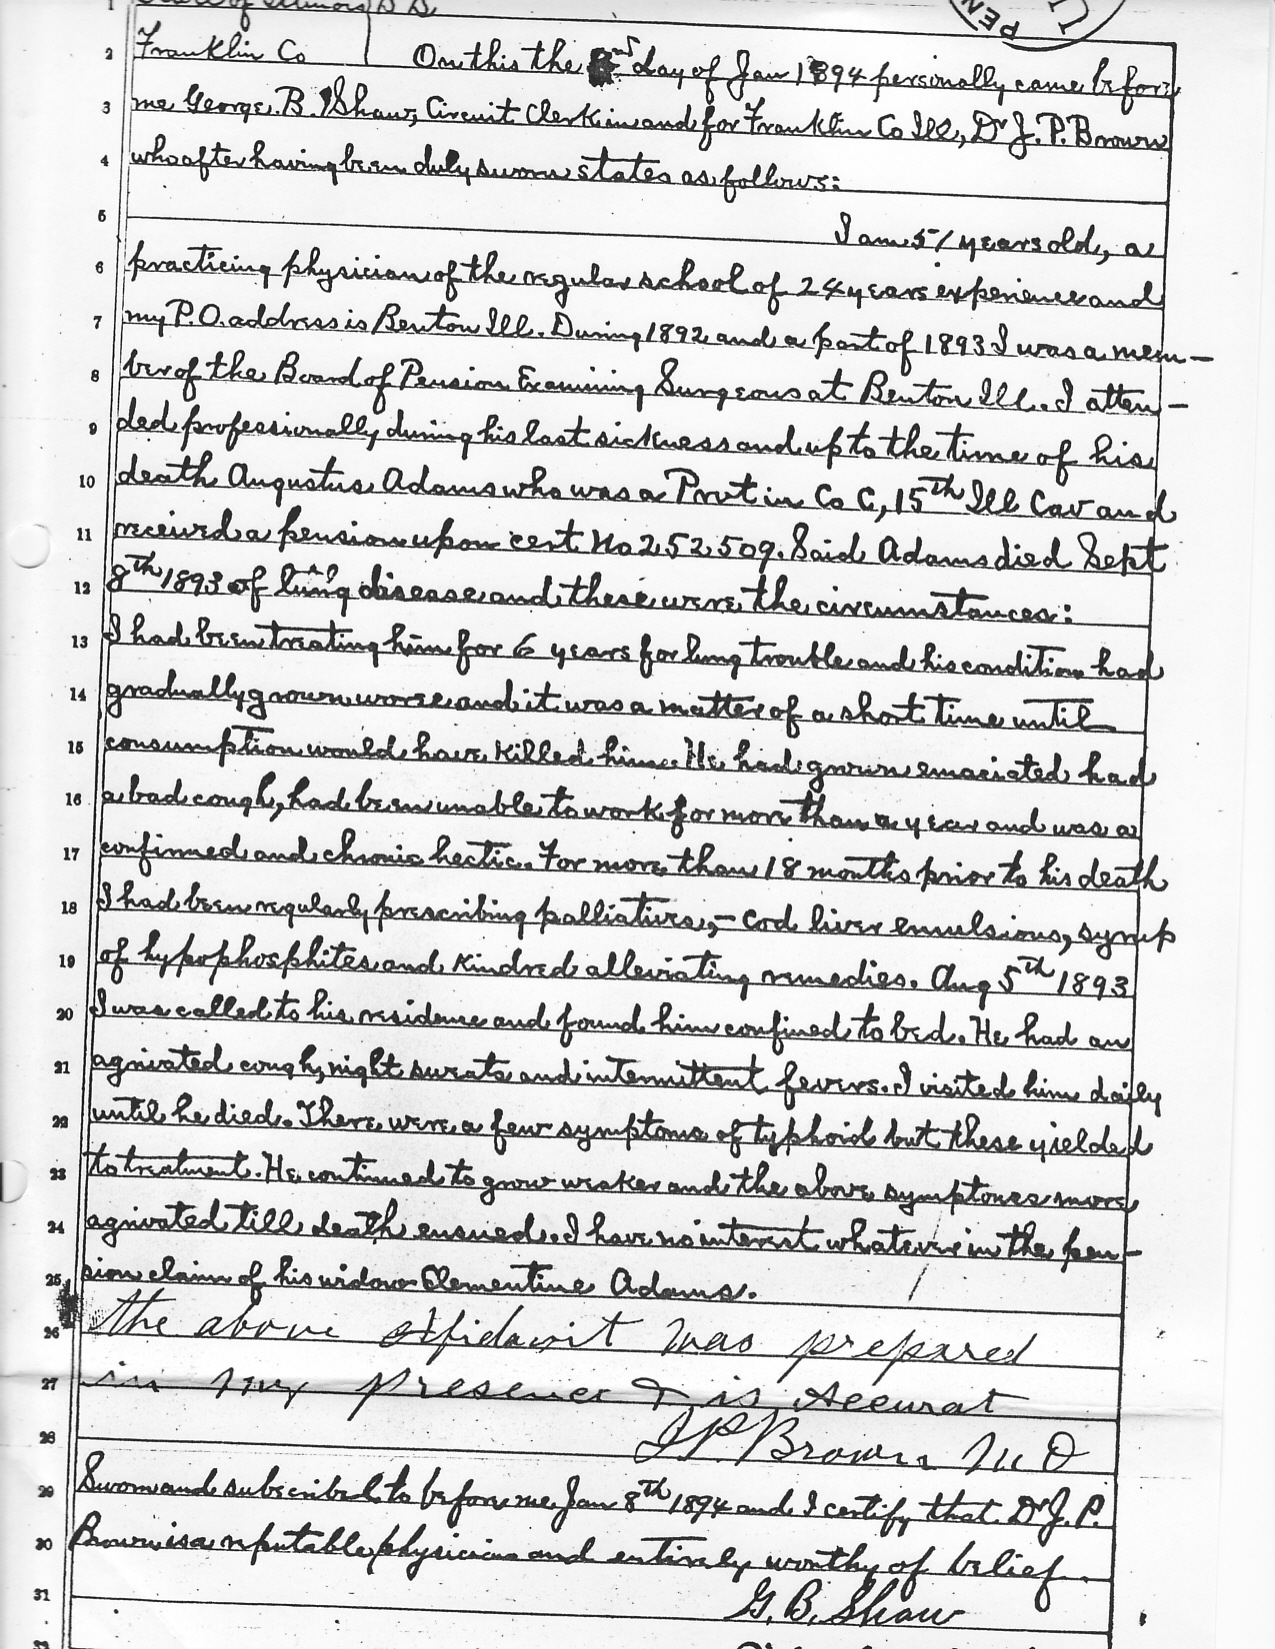 State of Illinois } S.S.
PEN
1
2 Franklin Co On this the day of Jan 1894 personally came before
3 me George. B. Shaw, Circuit Clerk in and for Franklin Co Ill, Dr J. P. Brown
4 who after having been duly sworn states as follows:
5 I am 51 years old, a
6 practicing physician of the regular school of 24 years experience and
7 my P.O. address is Benton Ill. During 1892 and a part of 1893 I was a mem-
8 ber of the Board of Pension Examining Surgeons at Benton Ill. I atten-
9 ded professionally during his last sickness and up to the time of his
10 death Augustus Adams who was a Pvt in Co C, 15th Ill Cav and
11 received a pension upon cert No 252509. Said Adams died Sept
12 8th 1893 of lung disease and these were the circumstances:
13 I had been treating him for 6 years for lung trouble and his condition had
14 gradually grown worse and it was a matter of a short time until
15 consumption would have killed him. He had grown emaciated had
16 a bad cough, had been unable to work for more than a year and was a
17 confirmed and chronic hectic. For more than 18 months prior to his death
18 I had been regularly prescribing palliatives,- cod liver emulsions, syrup
19 of hypophosphites and kindred alleviating remedies. Aug 5th 1893
20 I was called to his residence and found him confined to bed. He had an
21 agrivated cough, night sweats and intermittent fevers. I visited him daily
22 until he died. There were a few symptoms of typhoid but these yielded
23 to treatment. He continued to grow weaker and the above symptones more
24 agrivated till death ensued. I have no interest whatever in the pen-
25 sion claim of his widow Clementine Adams.
26 The above affidavit was prepared
27 in my presence & is accurat
28 J P Brown M D
29 Sworn and subscribed to before me Jan 8th 1894 and I certify that Dr J. P.
30 Brown is a reputable physician and entirely worthy of belief.
31 G. B. Shaw